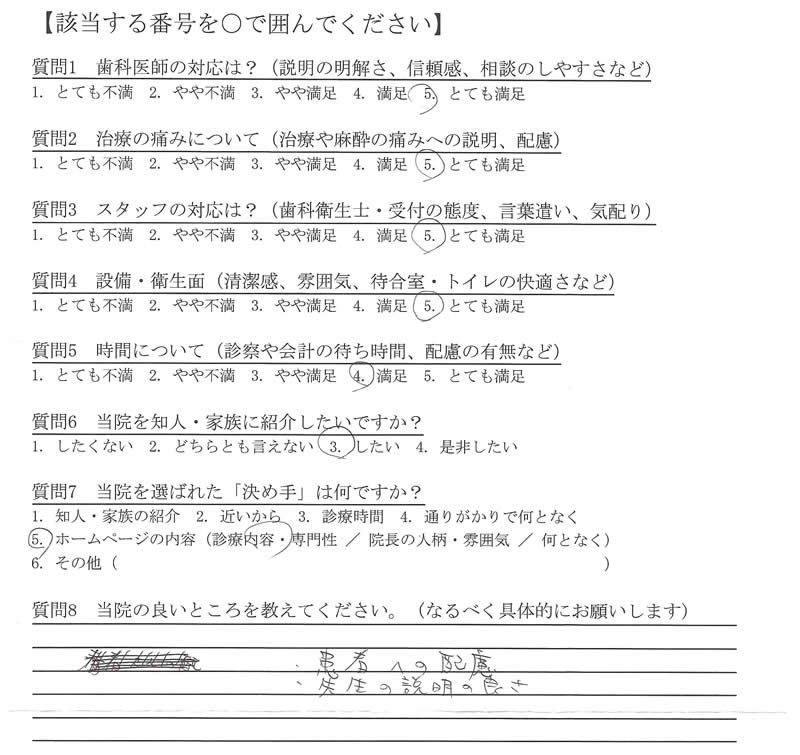 【該当する番号を○で囲んでください】
質問1　歯科医師の対応は？（説明の明解さ、信頼感、相談のしやすさなど）
1. とても不満　2. やや不満　3. やや満足　4. 満足　5. とても満足
質問2　治療の痛みについて（治療や麻酔の痛みへの説明、配慮）
1. とても不満　2. やや不満　3. やや満足　4. 満足　5. とても満足
質問3　スタッフの対応は？（歯科衛生士・受付の態度、言葉遣い、気配り）
1. とても不満　2. やや不満　3. やや満足　4. 満足　5. とても満足
質問4　設備・衛生面（清潔感、雰囲気、待合室・トイレの快適さなど）
1. とても不満　2. やや不満　3. やや満足　4. 満足　5. とても満足
質問5　時間について（診察や会計の待ち時間、配慮の有無など）
1. とても不満　2. やや不満　3. やや満足　4. 満足　5. とても満足
質問6　当院を知人・家族に紹介したいですか？
1. したくない　2. どちらとも言えない　3. したい　4. 是非したい
質問7　当院を選ばれた「決め手」は何ですか？
1. 知人・家族の紹介　2. 近いから　3. 診療時間　4. 通りがかりで何となく
5. ホームページの内容（診療内容・専門性 ／ 院長の人柄・雰囲気 ／ 何となく）
6. その他（　　　　　　　　　　　　　　　　　　　　　　　　　　）
質問8　当院の良いところを教えてください。（なるべく具体的にお願いします）
・患者への配慮
・先生の説明の良さ